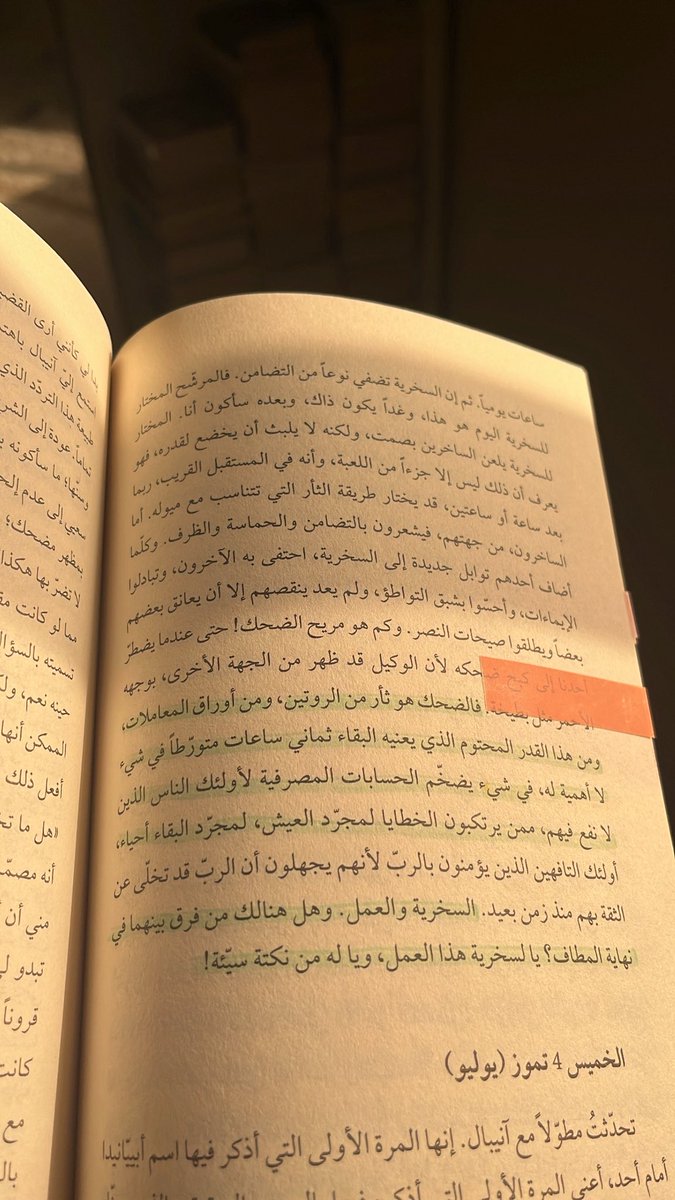 ساعات يومياً. ثم إن السخرية تضفي نوعاً من التضامن. فالمرشّح المختار
للسخرية اليوم هو هذا، وغداً يكون ذاك، وبعده سأكون أنا. المختار
للسخرية يلعن الساخرين بصمت، ولكنه لا يلبث أن يخضع لقدره، فهو
يعرف أن ذلك ليس إلا جزءاً من اللعبة، وأنه في المستقبل القريب، ربما
بعد ساعة أو ساعتين، قد يختار طريقة الثأر التي تتناسب مع ميوله. أما
الساخرون، من جهتهم، فيشعرون بالتضامن والحماسة والظرف. وكلّما
أضاف أحدهم توابل جديدة إلى السخرية، احتفى به الآخرون، وتبادلوا
الإيماءات، وأحسّوا بشبق التواطؤ، ولم يعد ينقصهم إلا أن يعانق بعضهم
بعضاً ويطلقوا صيحات النصر. وكم هو مريح الضحك! حتى عندما يضطرّ
أحدنا إلى كبح ضحكه لأن الوكيل قد ظهر من الجهة الأخرى، بوجهه
الأحمر مثل بطيخة. فالضحك هو ثأر من الروتين، ومن أوراق المعاملات،
ومن هذا القدر المحتوم الذي يعنيه البقاء ثماني ساعات متورّطاً في شيء
لا أهمية له، في شيء يضخّم الحسابات المصرفية لأولئك الناس الذين
لا نفع فيهم، ممن يرتكبون الخطايا لمجرّد العيش، لمجرّد البقاء أحياء،
أولئك التافهين الذين يؤمنون بالربّ لأنهم يجهلون أن الربّ قد تخلّى عن
الثقة بهم منذ زمن بعيد. السخرية والعمل. وهل هنالك من فرق بينهما في
نهاية المطاف؟ يا لسخرية هذا العمل، ويا له من نكتة سيّئة!
الخميس 4 تموز (يوليو)
تحدّثتُ مطوّلاً مع آنيبال. إنها المرة الأولى التي أذكر فيها اسم أبييّانيدا
أمام أحد، أعني المرة الأولى التي أذكر
لي كأنني أرى القض
استمع إليّ آنيبال باهت
طبيعة هذا التردّد الذي
تماماً. عودة إلى الشر
وسنّها؛ ما سأكونه
سعيي إلى عدم إلح
بمظهر مضحك؛
لا تضرّ بها هكذا
مما لو كانت مق
تسميته بالسؤال
حينه نعم، ولك
الممكن أنها
أفعل ذلك
«هل ما تح
أنه مصمّ
مني أن أ
تبدو لي
قروناً
كانت
مع